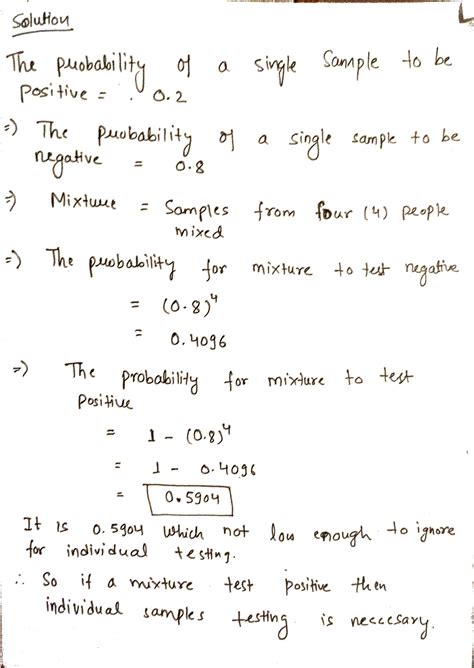 Solution
The probability of a single Sample to be
Positive = . 0.2
=) The probability of a single sample to be
negative = 0.8
=) Mixture = Samples from four (4) people
mixed
=) The probability for mixture to test negative
= (0.8)⁴
= 0.4096
=) The probability for mixture to test
Positive
= 1 - (0.8)⁴
= 1 - 0.4096
= 0.5904
It is 0.5904 which not low enough to ignore
for individual testing.
∴ So if a mixture test positive then
individual samples testing is neccesary.